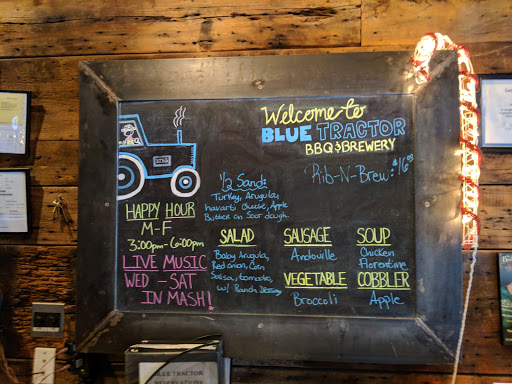 Welcome to
BLUE TRACTOR
BBQ & BREWERY
Rib-N-Brew: $16
1/2 Sand:
Turkey, Arugula,
havarti cheese, Apple
Butter on Sour dough.
HAPPY HOUR
M-F
3:00pm-6:00pm
LIVE MUSIC
WED - SAT
IN MASH!
SALAD
Baby Arugula,
Red onion, Corn
Salsa, tomato,
w/ Ranch Dressing
SAUSAGE
Andouille
VEGETABLE
Broccoli
SOUP
Chicken
Florentine
COBBLER
Apple
BLUE TRACTOR
RESERVATIONS